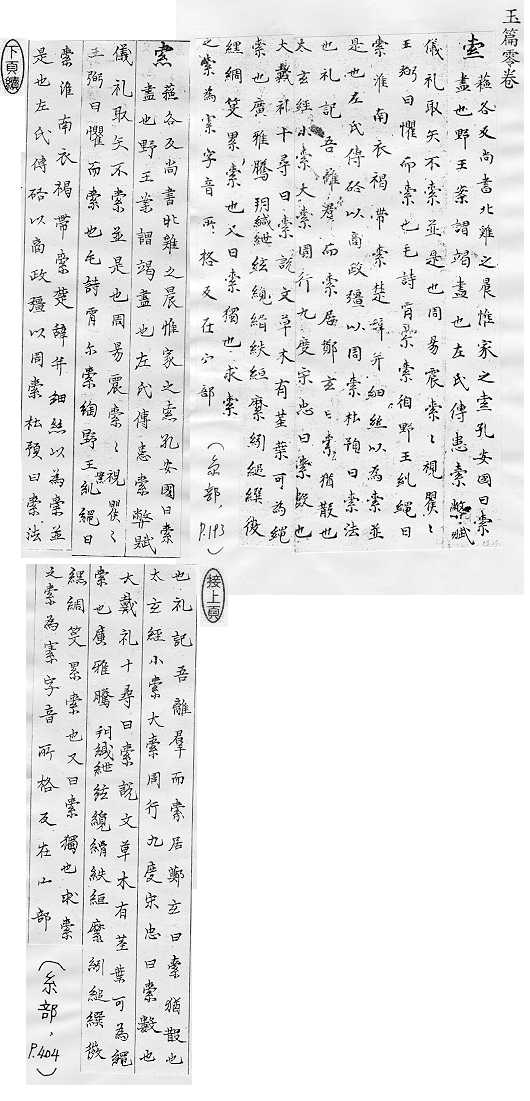 玉篇零卷
索 蘇各反尚書牝雞之晨惟家之索孔安國曰索
盡也野王案謂竭盡也左氏傳悉索弊賦
儀礼取矢不索並是也周易震索〻視瞿〻
王弼曰懼而索也毛詩宵尒索綯野王糺繩曰
索淮南衣褐帶索楚辞并細絲以為索並
是也左氏傳啓以商政疆以周索杜預曰索法
也礼記吾離羣而索居鄭玄曰索猶散也
太玄經小索大索周行九度宋忠曰索數也
大戴礼十尋曰索說文草木有莖葉可為繩
索也廣雅騰緘紲絃緍紩絙縻紖縋繏
縲綢筊累索也又曰索獨也求索
之索為𡩡字音所格反在宀部
(糸部，P.193)
索 蘇各反尚書牝雞之晨惟家之索孔安國曰索
盡也野王案謂竭盡也左氏傳悉索弊賦
儀礼取矢不索並是也周易震索〻視瞿〻
王弼曰懼而索也毛詩宵尒索綯野王糺繩曰
索淮南衣褐帶索楚辞并細絲以為索並
是也左氏傳啓以商政疆以周索杜預曰索法
下頁續
接上頁
也礼記吾離羣而索居鄭玄曰索猶散也
太玄經小索大索周行九度宋忠曰索數也
大戴礼十尋曰索說文草木有莖葉可為繩
索也廣雅騰緘紲絃緍紩絙縻紖縋繏
縲綢筊累索也又曰索獨也求索
之索為𡩡字音所格反在宀部
(糸部，P.404)